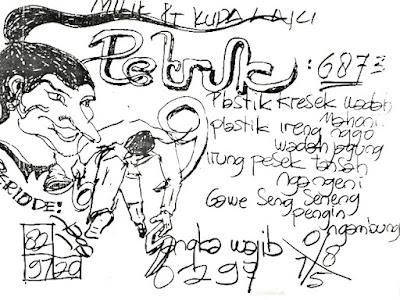 MILIK PT KUDA LAJU
Petruk : 6873
Plastik kresek wadah
Mahoni.
plastik ireng nggo
wadah jagung
irung pesek tansah
ngangeni
Gawe Seng Seneng
pengin
ngambung
BRIDDE!
82
97 20
angka wajib
0297
0/8
7/5